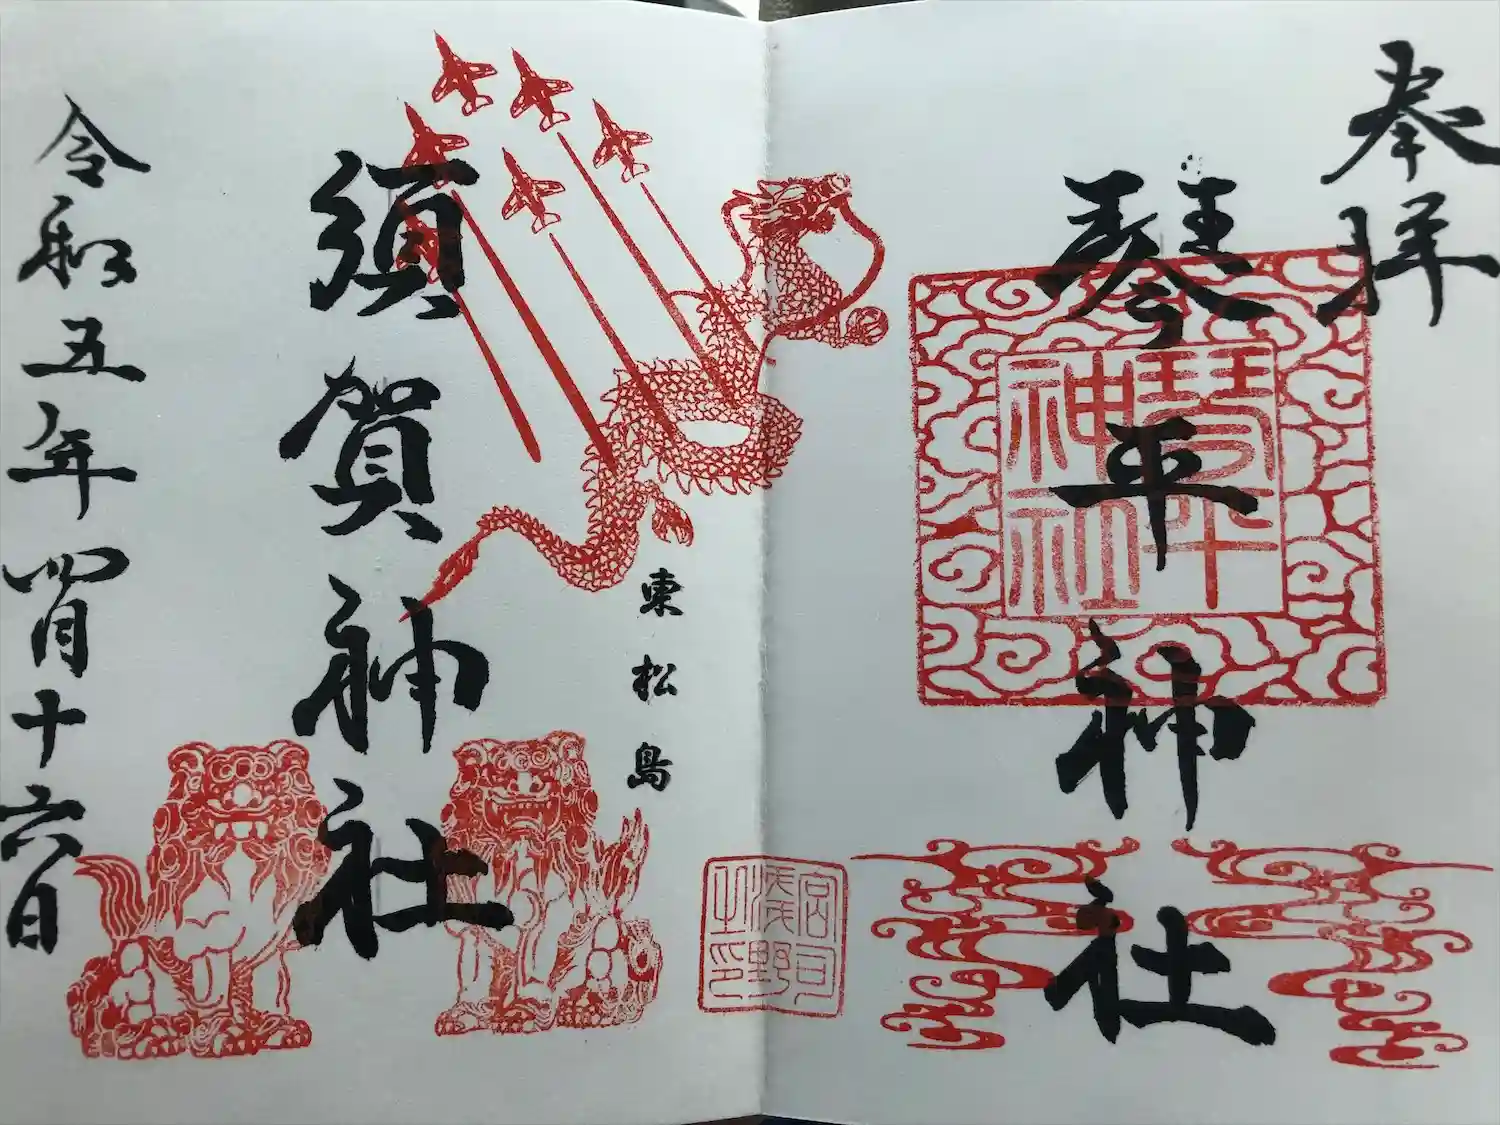 奉拝
琴平神社
琴平神社
東松島
須賀神社
令和五年四月十六日
宮司
浅野
之印